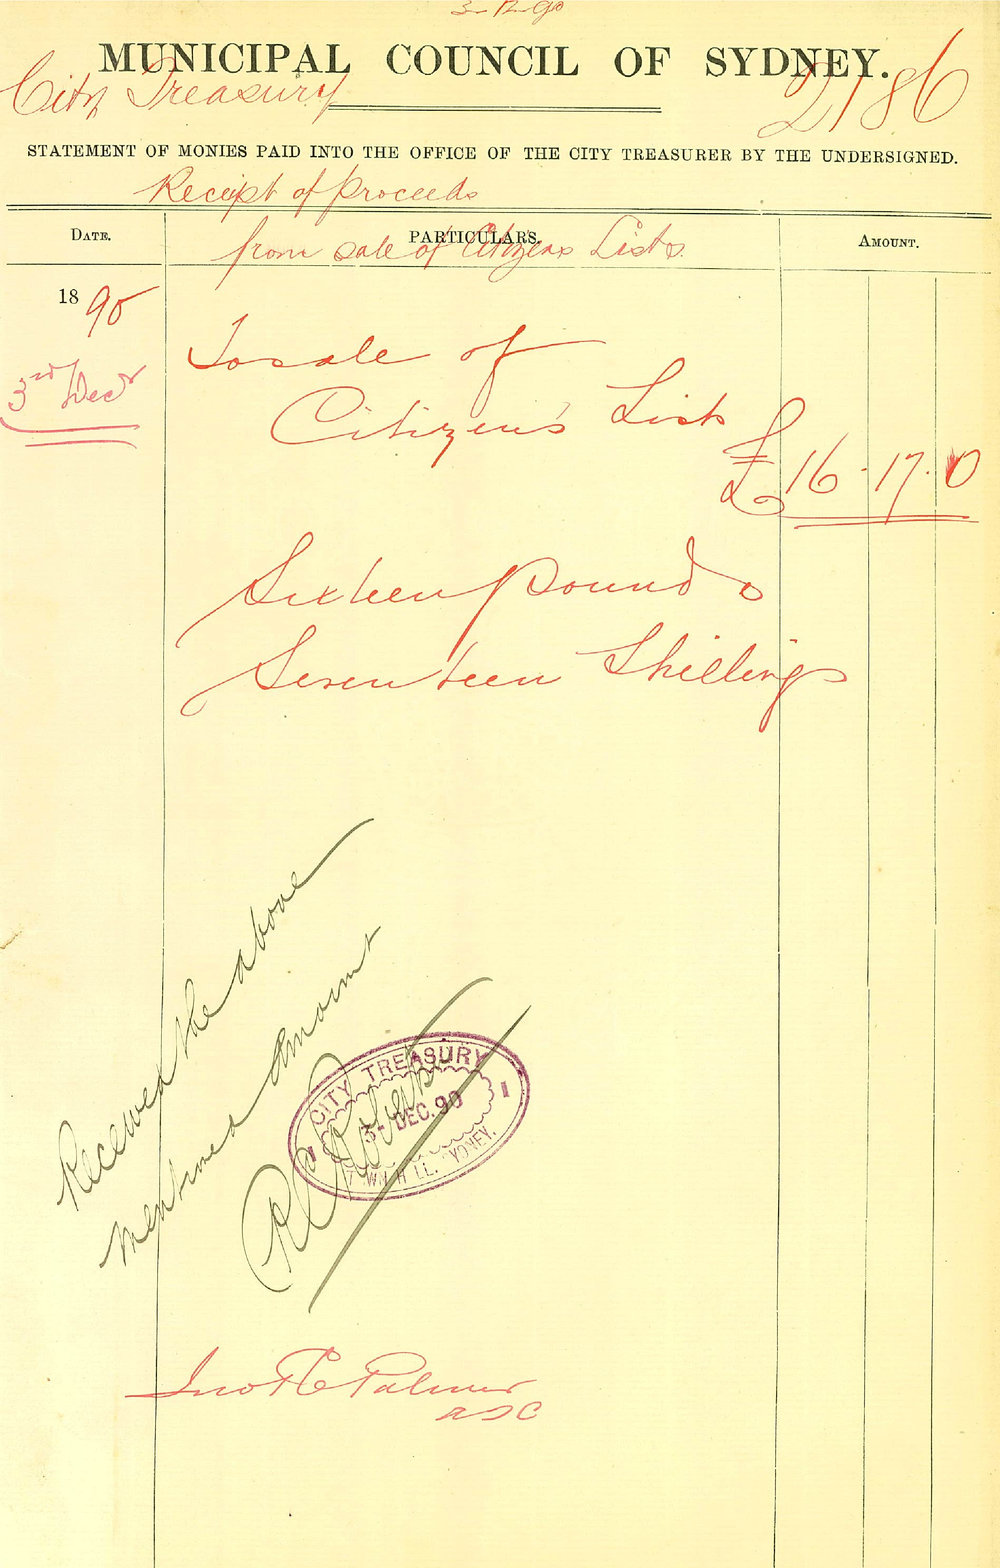 3-12-90
MUNICIPAL COUNCIL OF SYDNEY.
City Treasury
2186
STATEMENT OF MONIES PAID INTO THE OFFICE OF THE CITY TREASURER BY THE UNDERSIGNED.
Receipt of proceeds
DATE. PARTICULARS. AMOUNT.
from sale of Citizens Lists.
1890
3rd Decr
To sale of
Citizen's Lists
£16.17.0
Sixteen pounds
Seventeen Shillings
Received the above
mentioned amount
CITY TREASURY
3-DEC.90
TOWN HALL. SYDNEY.
Palmer